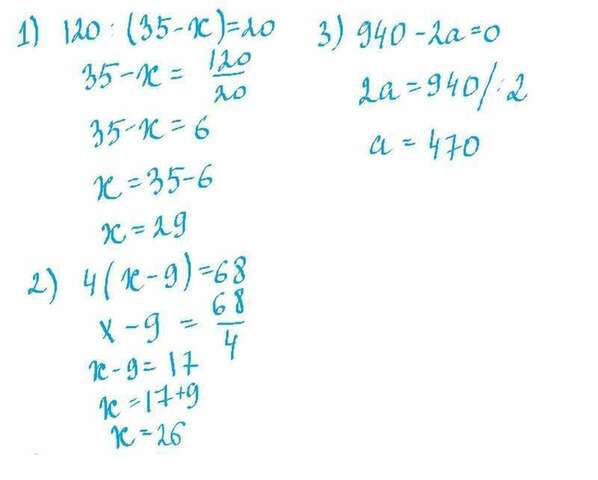 1) 120 : (35-x)=20
35-x = 120/20
35-x = 6
x = 35-6
x = 29
2) 4(x-9)=68
x-9 = 68/4
x-9 = 17
x = 17+9
x = 26
3) 940-2a=0
2a = 940/:2
a = 470